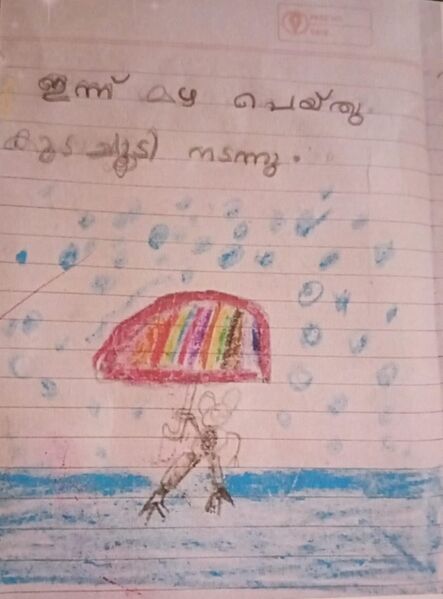 ഇന്ന് മഴ പെയ്തു
കുട ചൂടി നടന്നു.